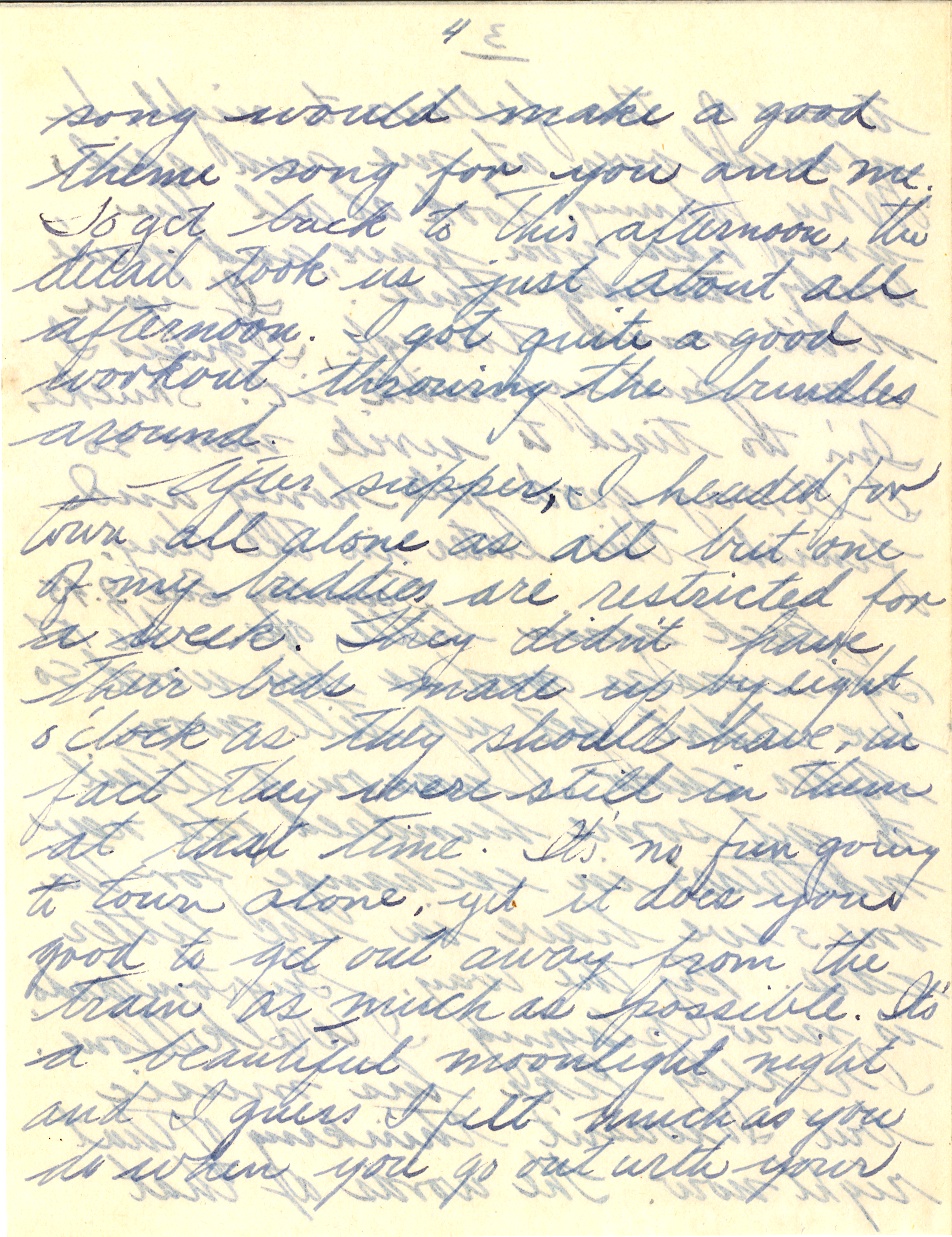 4
song would make a good
theme song for you and me.
To get back to this afternoon, the
detail took us just about all
afternoon. I got quite a good
workout throwing the bundles
around.
After supper, I headed for
town all alone as all but one
of my buddies are restricted for
a week. They didn't have
their beds made up by eight
o'clock as they should have, in
fact they were still in them
at that time. It's no fun going
to town alone, yet it does you
good to get out away from the
train as much as possible. It's
a beautiful moonlight night
and I guess I felt much as you
do when you go out with your